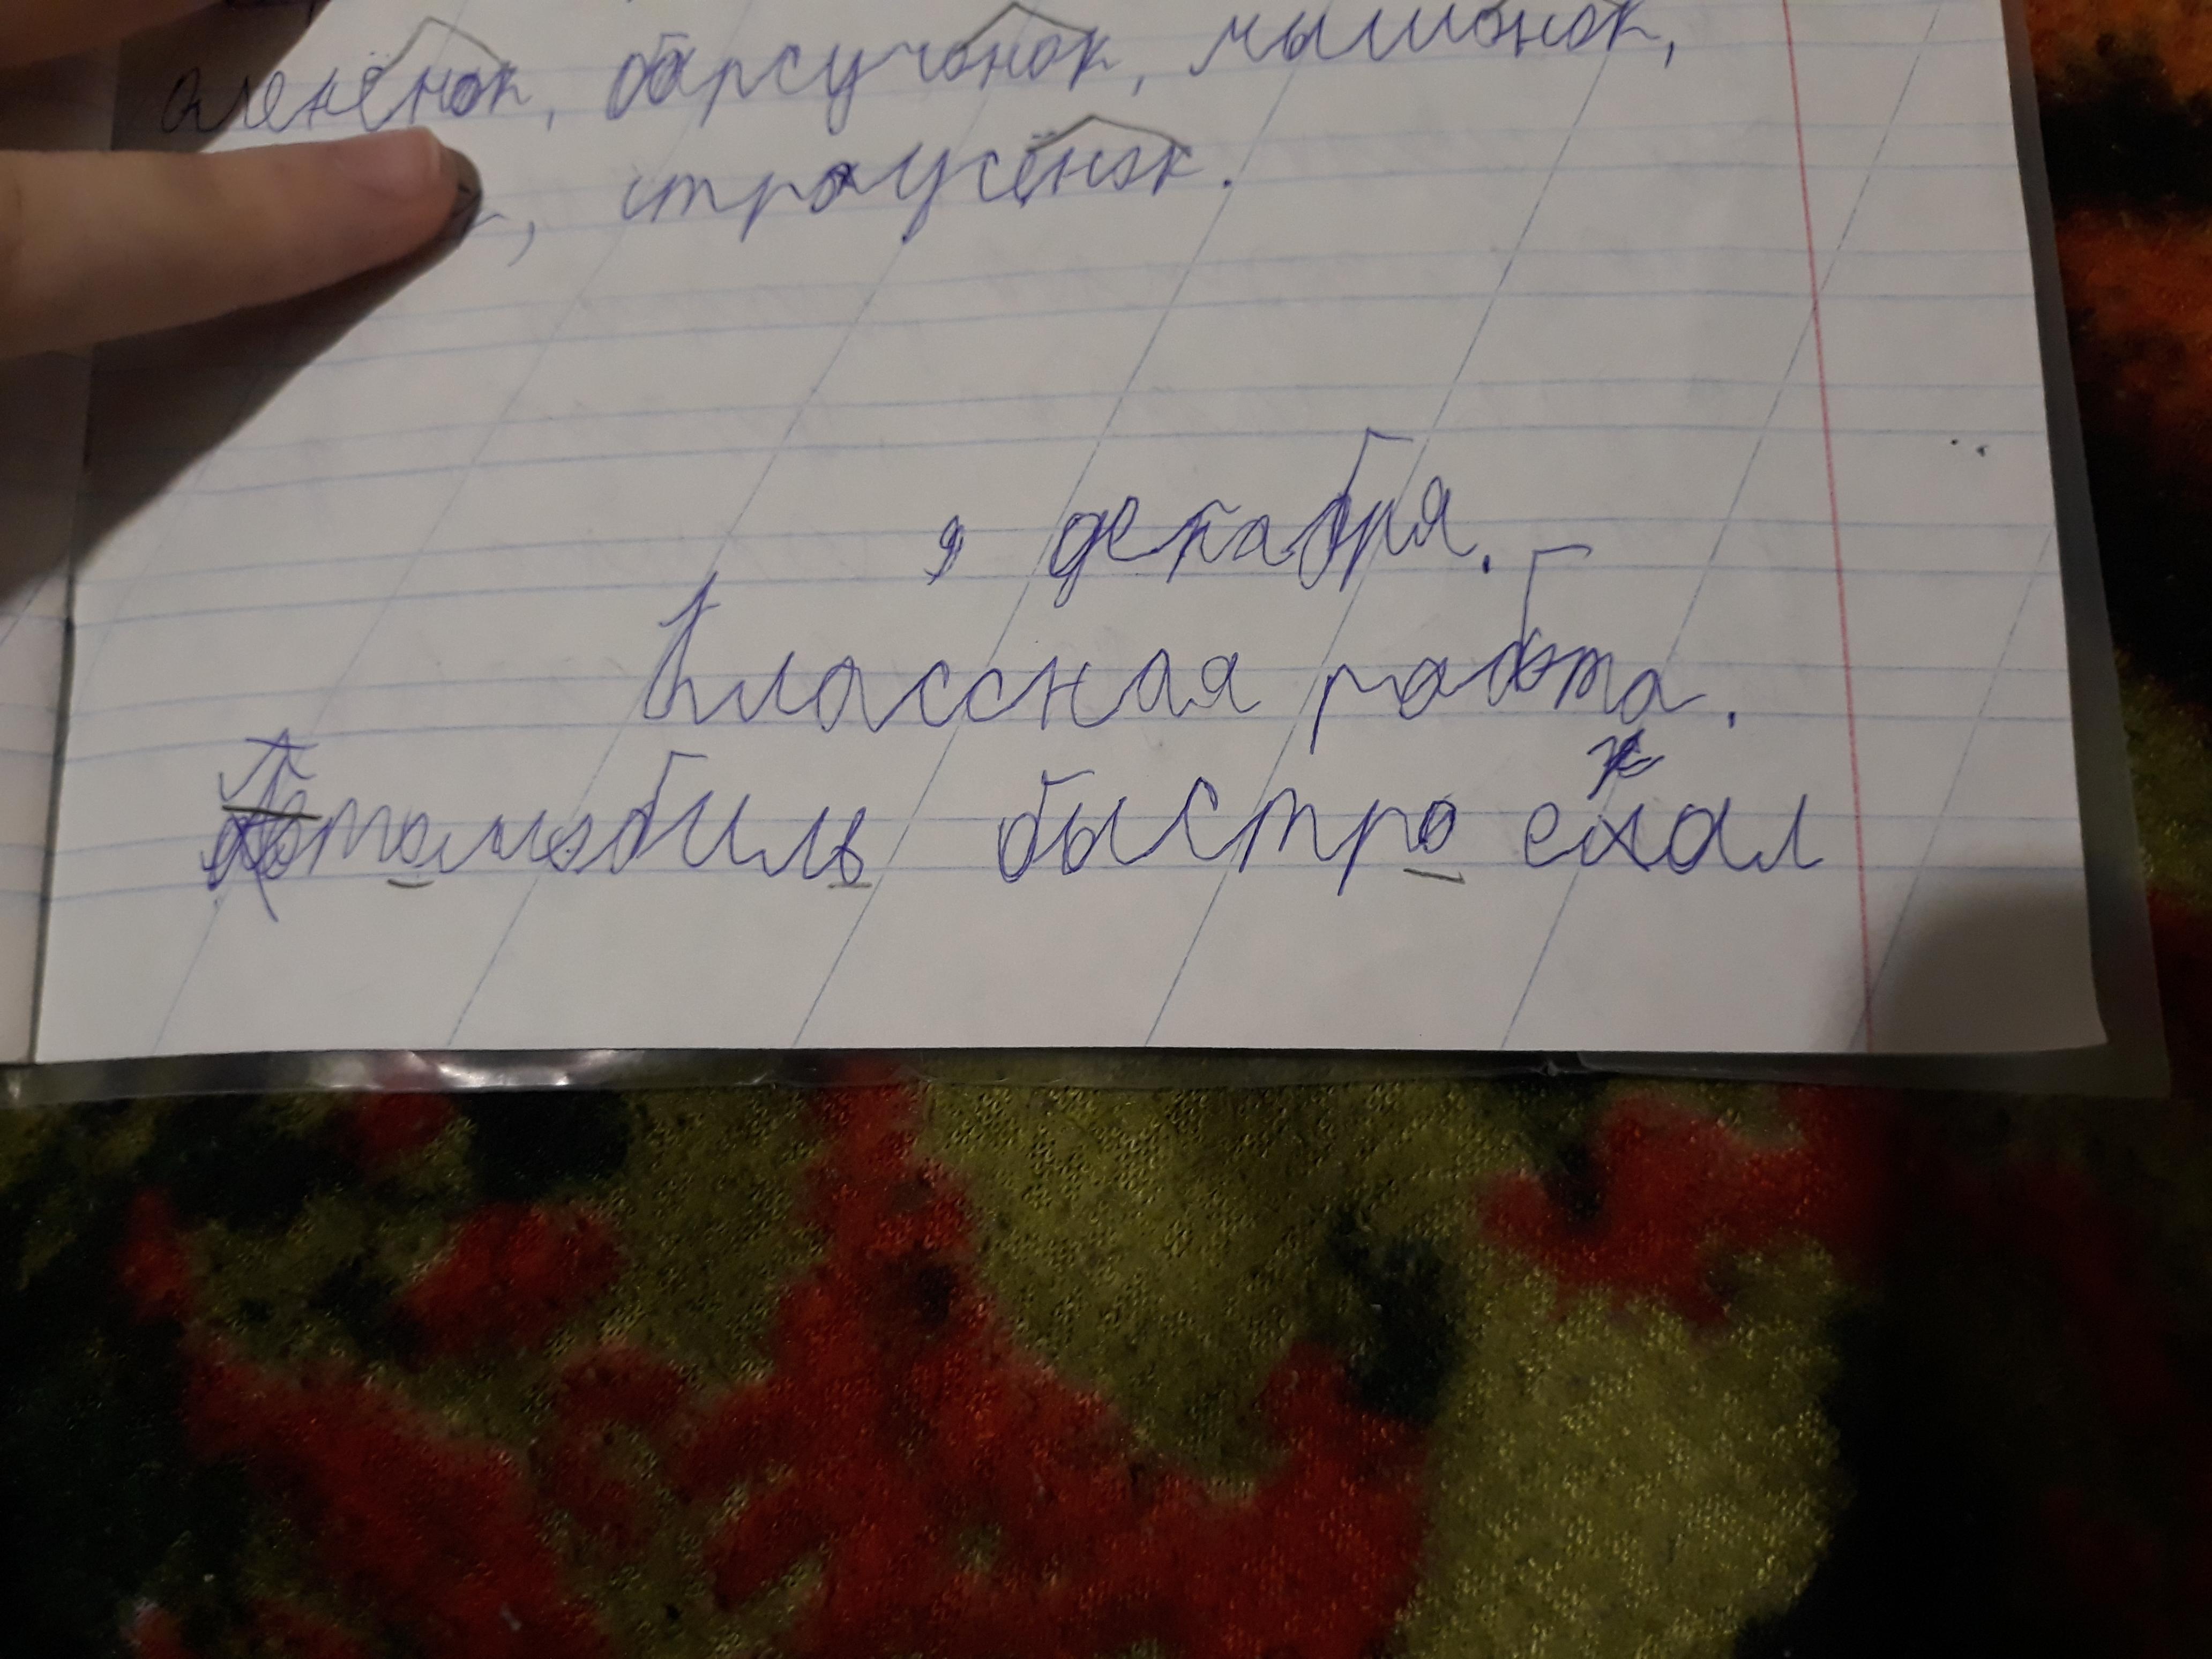 оленёнок, барсучонок, мышонок,
, страусёнок.
9 декабря.
Классная работа.
Автомобиль быстро ехал